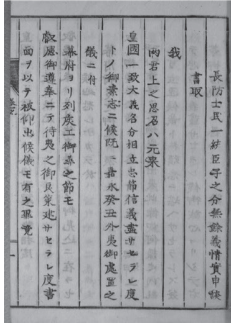 長防士民一統臣子之分無餘義情實申候
書取
我
両君上之思召ハ元来
皇國一致大義名分相立忠節信義盡サセラレ度
トノ御素志ニ候既ニ嘉永癸丑外夷御處置之
儀ニ付
幕府ヨリ列侯エ御尋之節モ
叡慮御遵奉ニテ待夷之御良策逃サセラレ度書
面ヲ以テ被仰出候儀モ有之畢竟